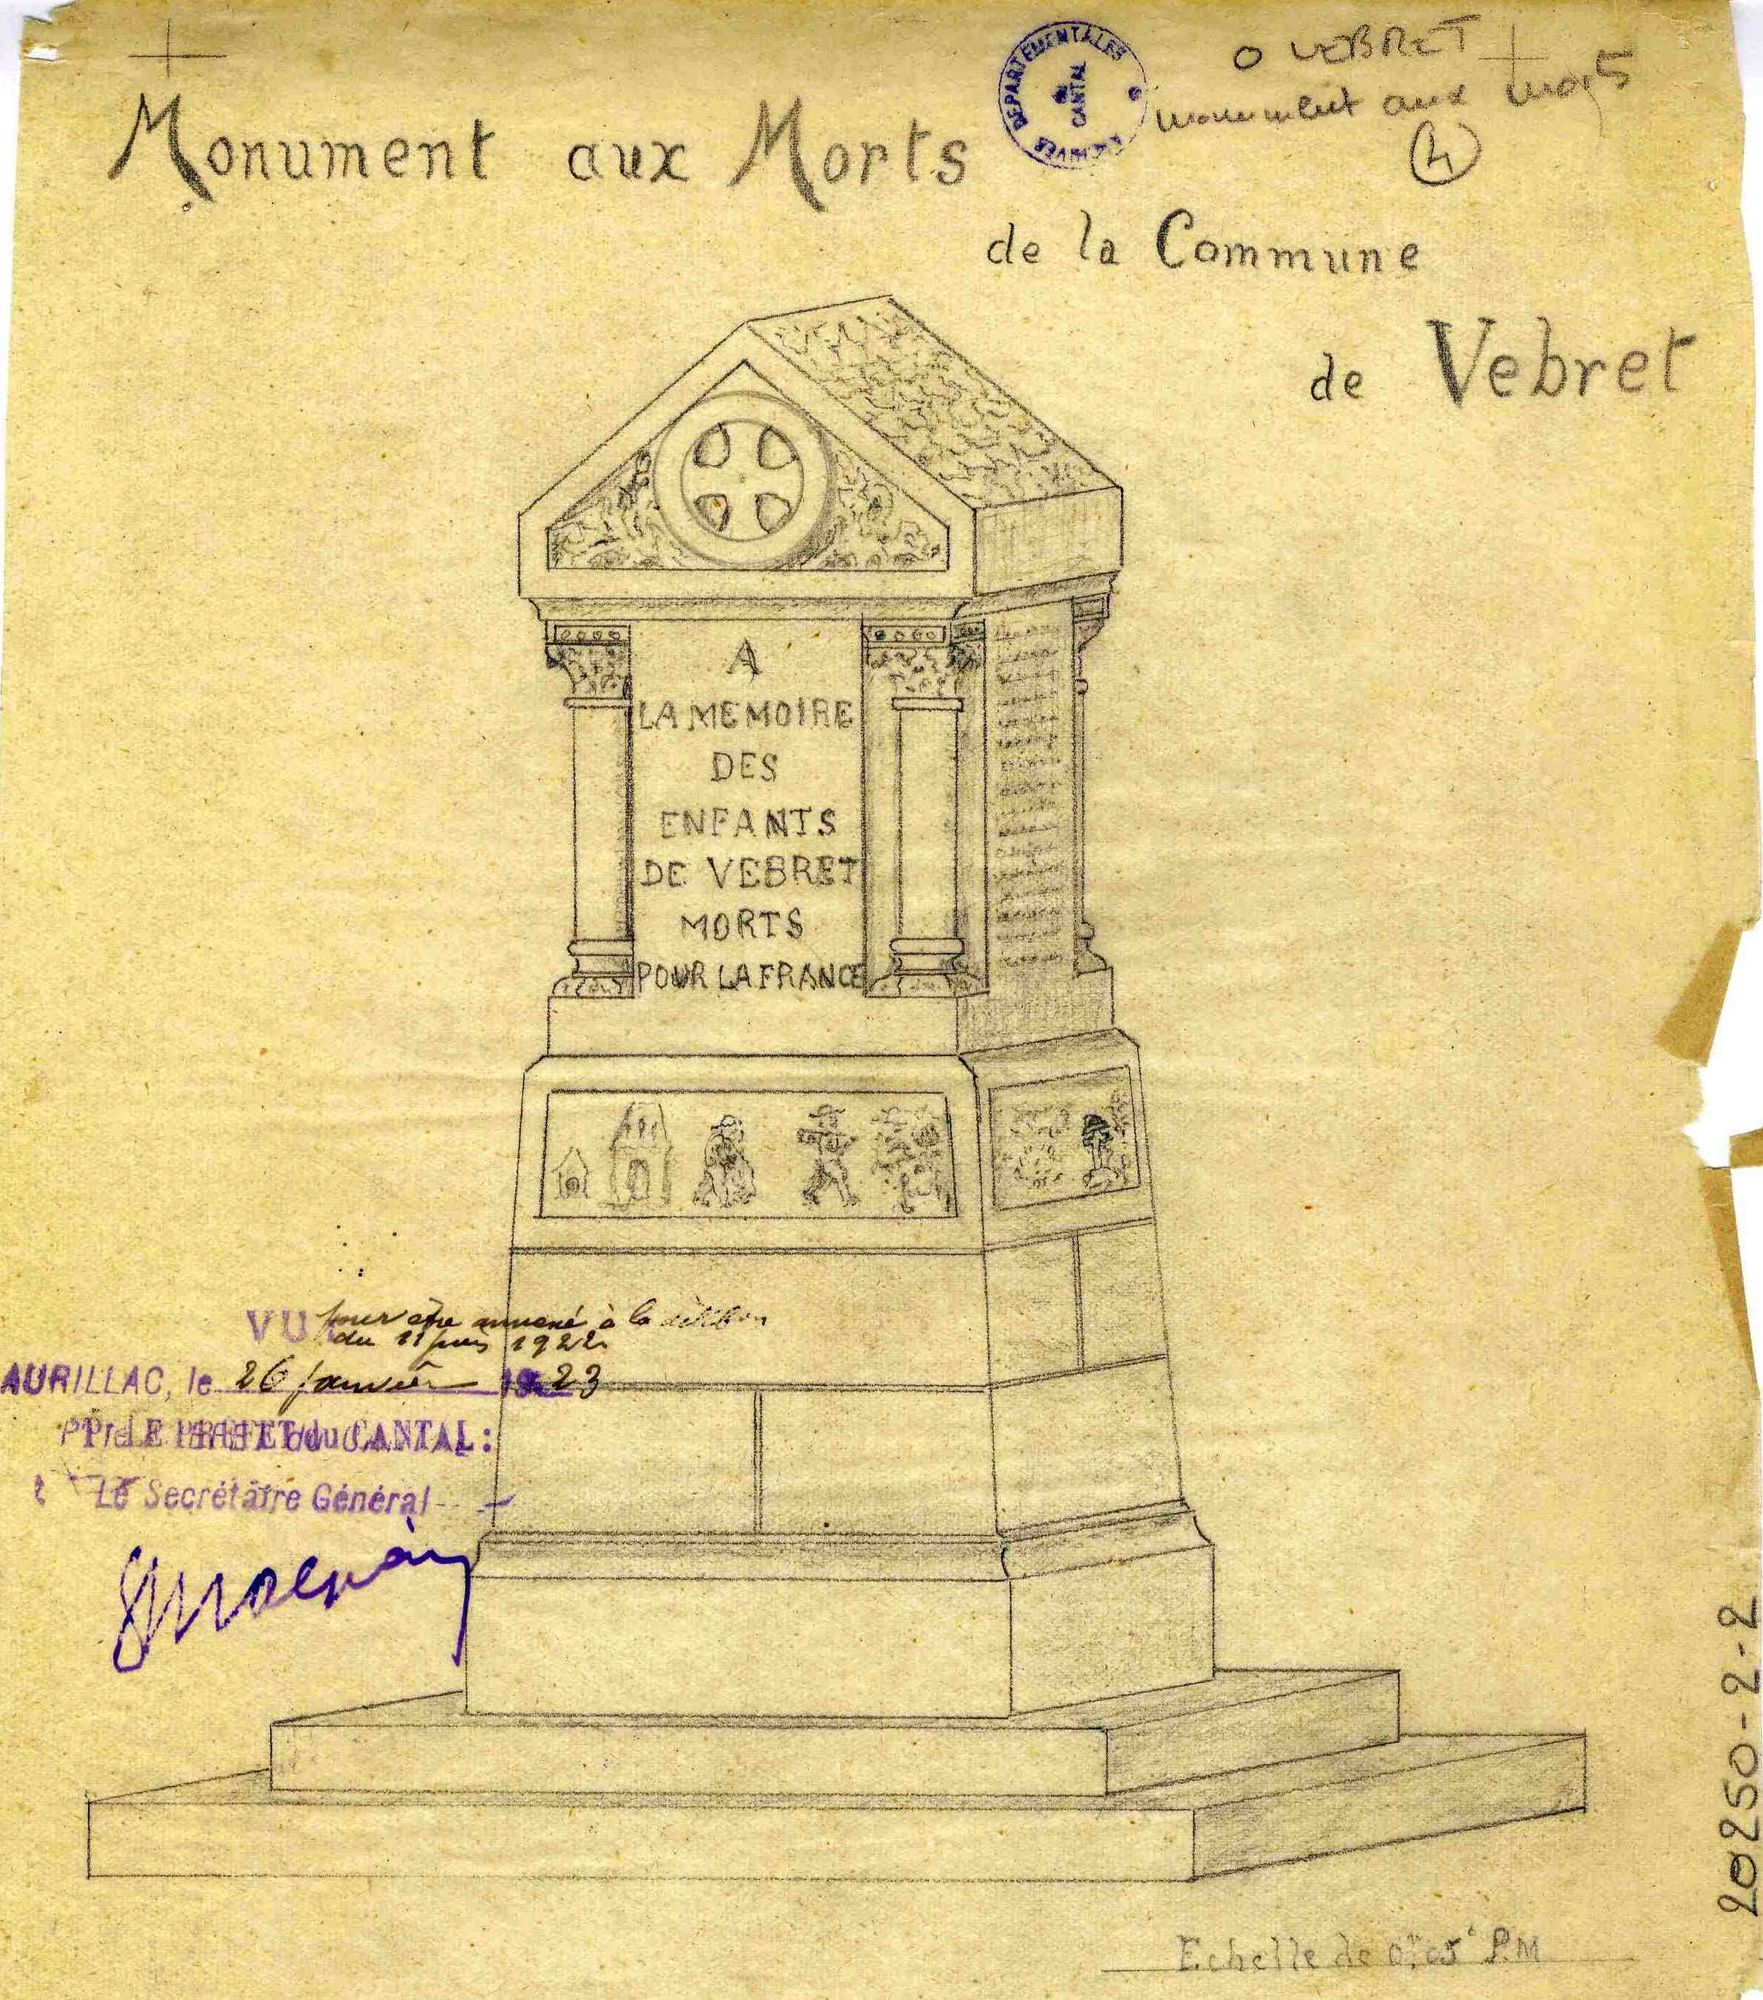 O VEBRET
monument aux morts
ARCHIVES DEPARTEMENTALES
du
CANTAL
Monument aux Morts
de la Commune
de Vebret
A
LA MEMOIRE
DES
ENFANTS
DE VEBRET
MORTS
POUR LA FRANCE
VU pour être annexé à la
du 11 juin 1922
AURILLAC, le 26 janvier 1923
Pr LE PREFET du CANTAL:
Le Secrétaire Général
20250-2-2
Echelle de 0m05c P.M